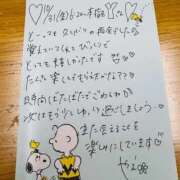 ♡10/31(金)6:20〜本指 さん♡
とーっても久しぶりの再会でしたが
覚えていてくれてびっくりで
とっても嬉しかったです
たんたん楽しんでもらえたかな??
時間ばたばたでごめんね
次はもう少しゆっくり過ごしましょう〜
また会えることを
楽しみにしています
やよ